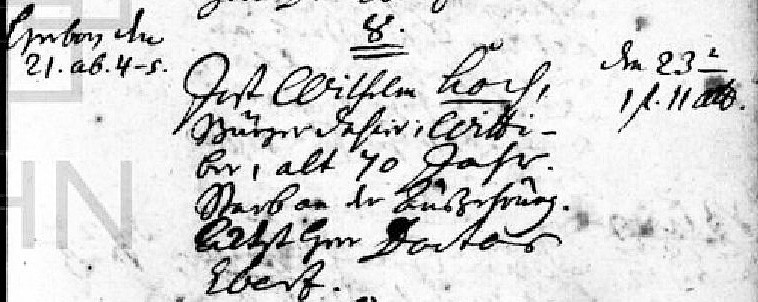 8.
Gestorben den
21. ab. 4-5.
Jost Wilhelm Koch,
Bürger dahier, Witti-
ber, alt 70 Jahr.
Starb an der Auszehrung.
Artzt Herr Doctor
Ebert.
den 23t
1 f. 11 alb.
HN